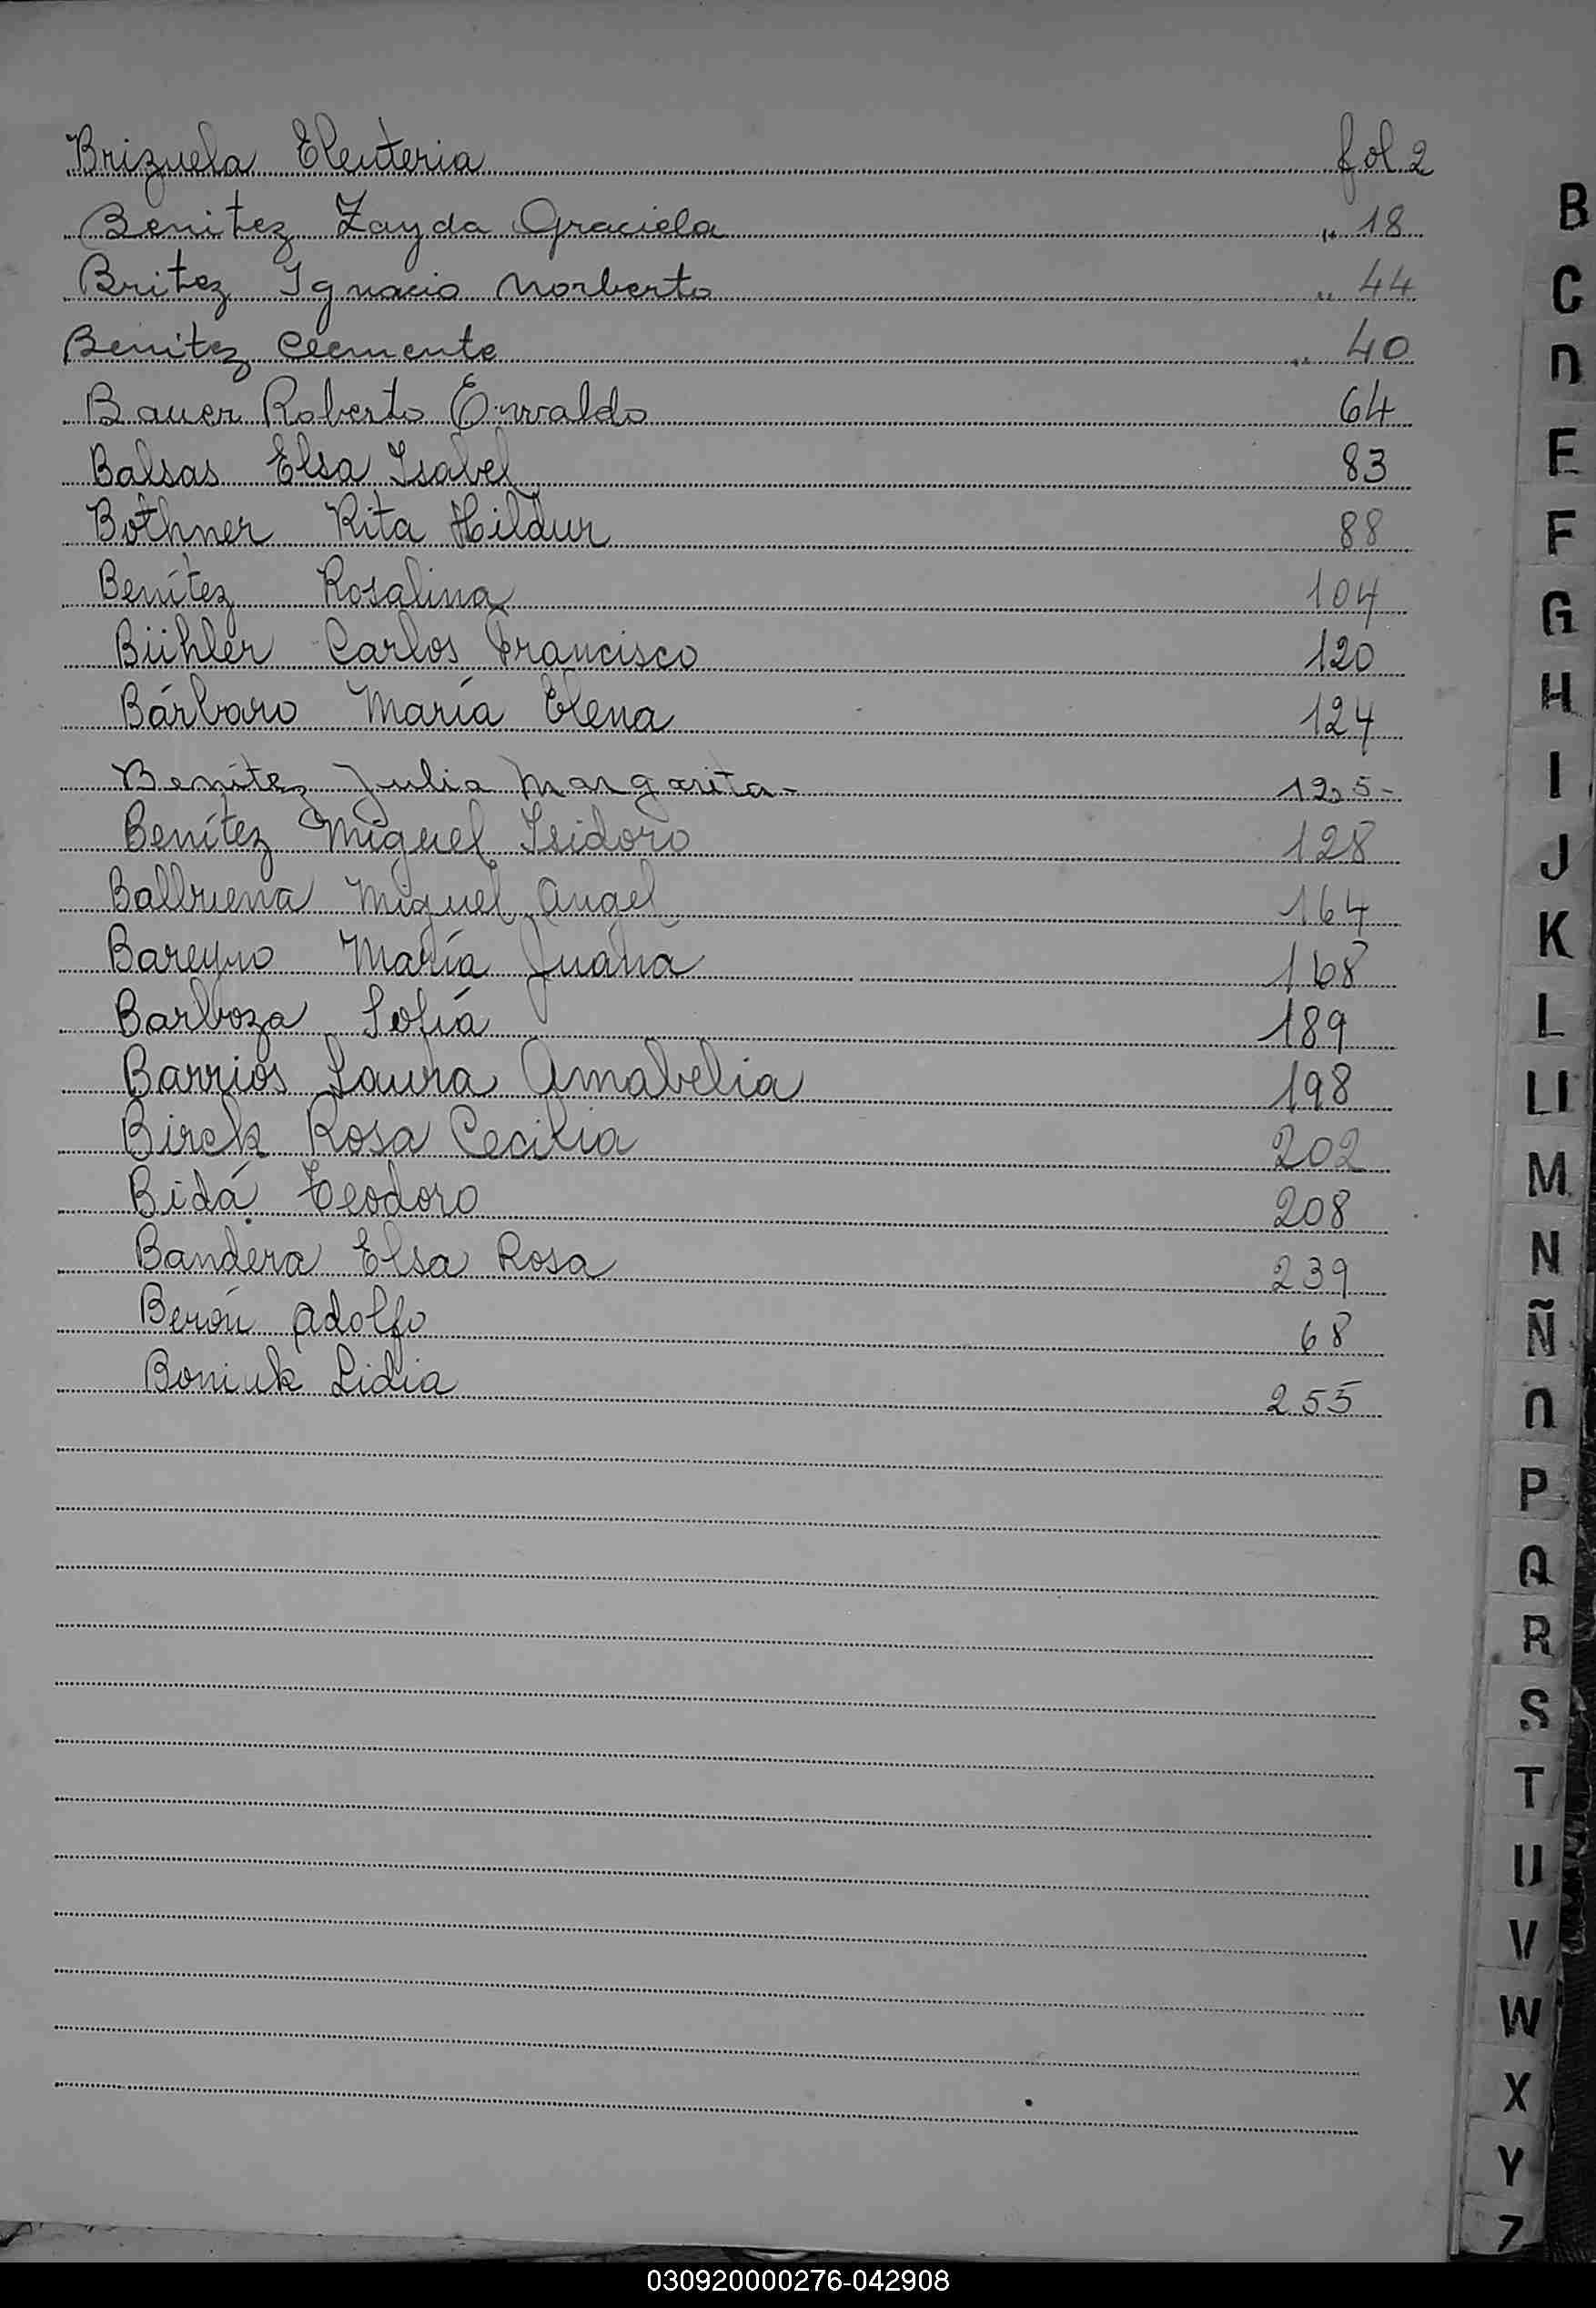 Brizuela Eleuteria fol 2
Benitez Zayda Graciela " 18
Britez Ignacio Norberto " 44
Benitez Clemente " 40
Bauer Roberto Osvaldo 64
Balsas Elsa Isabel 83
Bothner Rita Hildur 88
Benítez Rosalina 104
Bühler Carlos Francisco 120
Bárbaro María Elena 124
Benítez Julia Margarita - 125 -
Benítez Miguel Isidoro 128
Balbuena Miguel Angel 164
Bareyro María Juana 168
Barboza Sofía 189
Barrios Laura Amabelia 198
Birck Rosa Cecilia 202
Bidá Teodoro 208
Bandera Elsa Rosa 239
Berón Adolfo 68
Boniuk Lidia 255
B
C
D
E
F
G
H
I
J
K
L
Ll
M
N
Ñ
O
P
Q
R
S
T
U
V
W
X
Y
Z
030920000276-042908